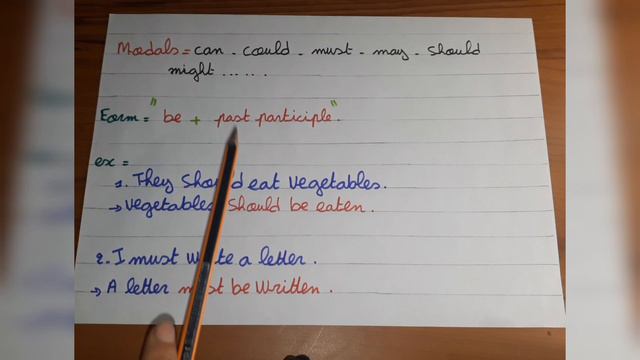 Modals = can - could - must - may - should
might ......
Form = "be + past participle".
ex =
1. They should eat vegetables.
→ vegetables should be eaten.
2. I must write a letter.
→ A letter must be written.